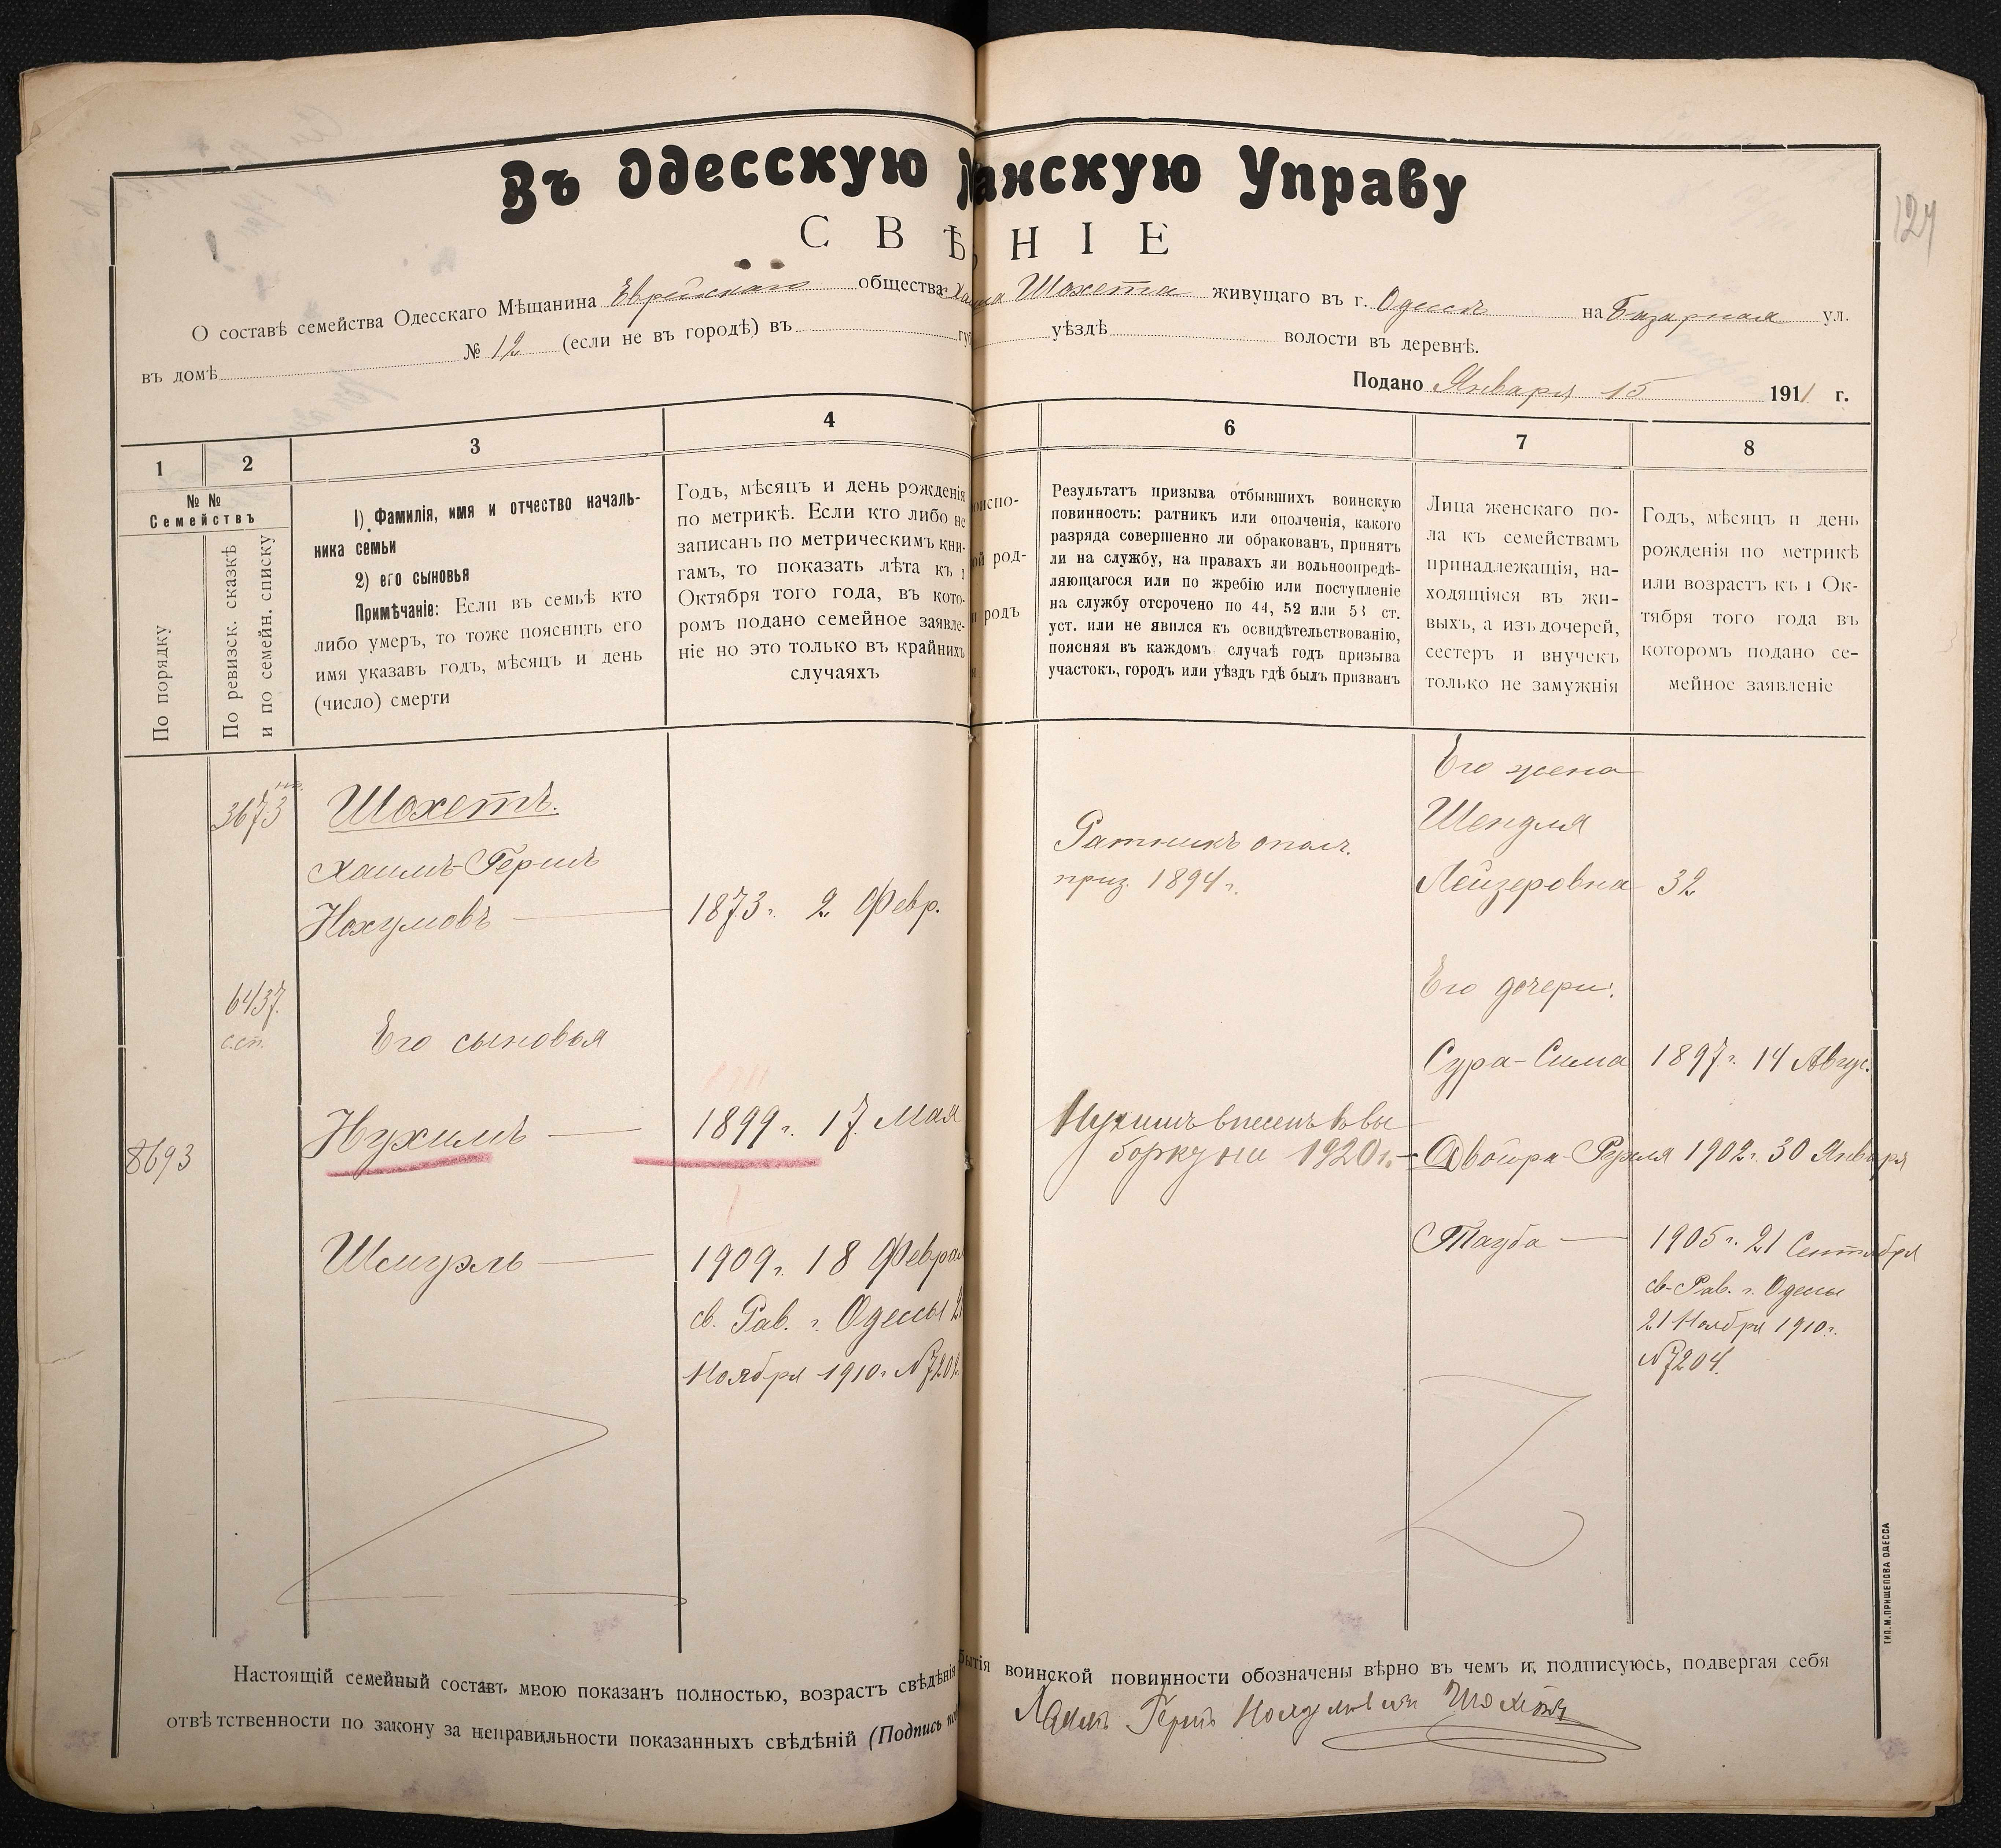 Въ Одесскую анскую Управу
С В Ѣ Н І Е
О составѣ семейства Одесскаго Мѣщанина Еврейскаго общества Хаима Шохета живущаго въ г. Одессѣ на Базарная ул.
въ домѣ № 12 (если не въ городѣ) въ гу уѣздѣ волости въ деревнѣ.
Подано Января 15 1911 г.
127
1
2
3
4
6
7
8
№ №
Семействъ
По порядку
По ревизск. сказкѣ
и по семейн. списку
1) Фамилія, имя и отчество началь-
ника семьи
2) его сыновья
Примѣчаніе: Если въ семьѣ кто
либо умеръ, то тоже пояснить его
имя указавъ годъ, мѣсяцъ и день
(число) смерти
Годъ, мѣсяцъ и день рожденія
по метрикѣ. Если кто либо не
записанъ по метрическимъ кни-
гамъ, то показать лѣта къ 1
Октября того года, въ кото-
ромъ подано семейное заявле-
ніе но это только въ крайнихъ
случаяхъ
испо-
ой род-
родъ
Результатъ призыва отбывшихъ воинскую
повинность: ратникъ или ополченія, какого
разряда совершенно ли обракованъ, принятъ
ли на службу, на правахъ ли вольноопредѣ-
ляющагося или по жребію или поступленіе
на службу отсрочено по 44, 52 или 53 ст.
уст. или не явился къ освидѣтельствованію,
поясняя въ каждомъ случаѣ годъ призыва
участокъ, городъ или уѣздъ гдѣ былъ призванъ
Лица женскаго по-
ла къ семействамъ
принадлежащія, на-
ходящіяся въ жи-
выхъ, а изъ дочерей,
сестеръ и внучекъ
только не замужнія
Годъ, мѣсяцъ и день
рожденія по метрикѣ
или возрастъ къ 1 Ок-
тября того года въ
которомъ подано се-
мейное заявленіе
3673
Шохетъ.
Хаимъ-Гершъ
Нохумовъ
1873 г. 2 Февр.
Ратникъ опол.
приз. 1894 г.
Его жена
Шендля
Лейзеровна 32
6437.
с.сп.
Его сыновья
Его дочери:
Сура-Сима 1897 г. 14 Авгус.
8693
Нухимъ
1911
1899 г. 17 Мая
Нухимъ внесенъ въ вы
борку на 1920 г.
Двойра-Рухля 1902 г. 30 Января
Шмуэль
1909 г. 18 Феврал
св. Рав. г. Одессы 2
Ноября 1910 г. №7204
Тауба 1905 г. 21 Сентября
св. Рав. г. Одессы
21 Ноября 1910 г.
№7204.
Настоящій семейный составъ мною показанъ полностью, возрастъ свѣдѣнія бытія воинской повинности обозначены вѣрно въ чемъ и подписуюсь, подвергая себя
отвѣтственности по закону за неправильности показанныхъ свѣдѣній (Подпись
Хаимъ Гершъ Нохумовичъ Шохетъ
ТИП. М. ПРИЩЕПОВА ОДЕССА